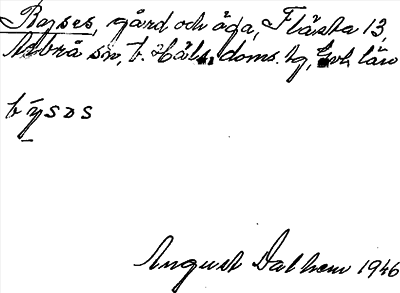 Bojses, gård och äga, Flästa 13,
Arbrå sn, t. Häls. doms. tg, Gvb. län
býsɔs
August Dalhem 1946